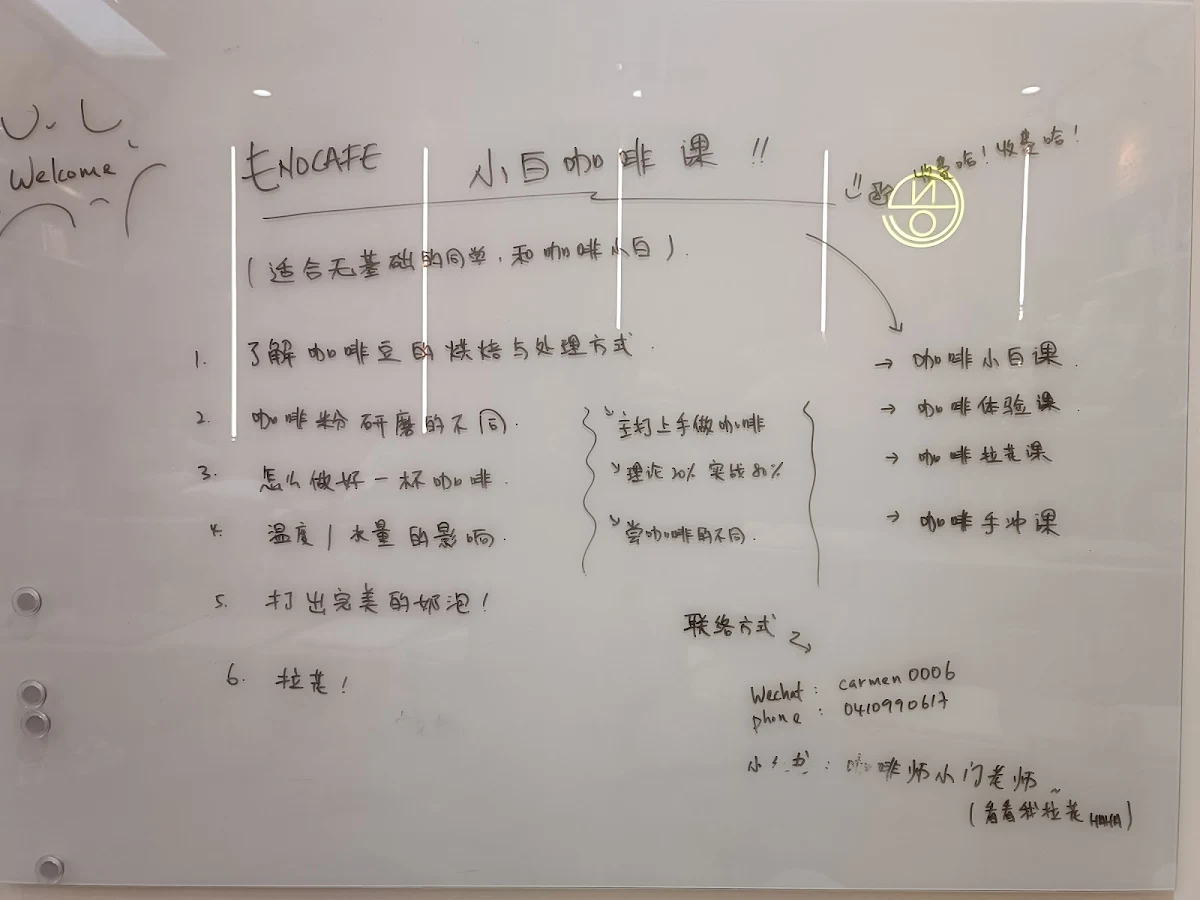 Welcome
ENOCAFE 小白咖啡课 !!
收费哈！收费哈！
(适合无基础的同学，和咖啡小白).
1. 了解咖啡豆的烘焙与处理方式.
2. 咖啡粉研磨的不同.
3. 怎么做好一杯咖啡.
4. 温度 | 水量的影响.
5. 打出完美的奶泡！
6. 拉花！
主打上手做咖啡
理论20% 实战80%
尝咖啡的不同.
→ 咖啡小白课.
→ 咖啡体验课.
→ 咖啡拉花课
→ 咖啡手冲课
联络方式
Wechat: carmen0006
phone: 0410990617
小红书: 咖啡师小门老师~
(看看我拉花HAHA)